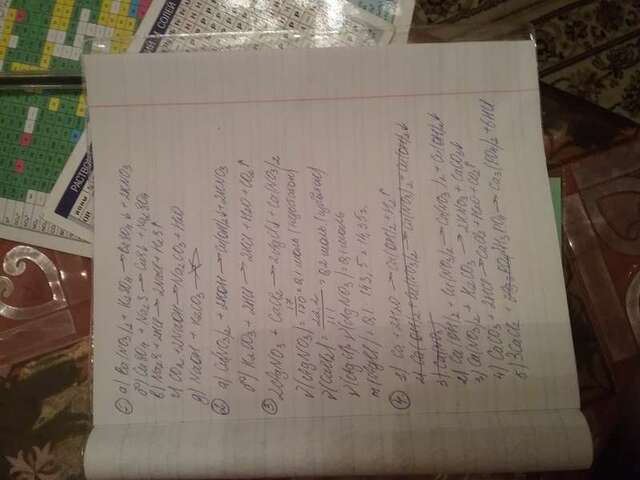 РАСТВОР
СОЛЕЙ
ИОНЫ
1 а) Ba(NO3)2 + K2SO4 → BaSO4↓ + 2KNO3
б) CuSO4 + Na2S → CuS↓ + Na2SO4
в) Na2S + 2HCl → 2NaCl + H2S↑
г) CO2 + 2NaOH → Na2CO3 + H2O
д) NaOH + K2CO3 →
2 а) Cu(NO3)2 + 2KOH → Cu(OH)2↓ + 2KNO3
б) K2CO3 + 2HCl → 2KCl + H2O + CO2↑
3 2AgNO3 + CaCl2 → 2AgCl↓ + Ca(NO3)2
ν(AgNO3) = 17/170 = 0,1 моль (недостаток)
ν(CaCl2) = 22,2/111 = 0,2 моль (избыток)
ν(AgCl) = ν(AgNO3) = 0,1 моль
m(AgCl) = 0,1 · 143,5 = 14,35г.
4 1) Ca + 2H2O → Ca(OH)2 + H2↑
2) Ca(OH)2 + Cu(NO3)2 → Ca(NO3)2 + Cu(OH)2↓
3) Ca(NO3)
2) Ca(OH)2 + Cu(NO3)2 → Ca(NO3)2 + Cu(OH)2↓
3) Ca(NO3)2 + K2CO3 → 2KNO3 + CaCO3↓
4) CaCO3 + 2HCl → CaCl2 + H2O + CO2↑
5) 3CaCl2 + 2H3PO4 → Ca3(PO4)2 + 6HCl